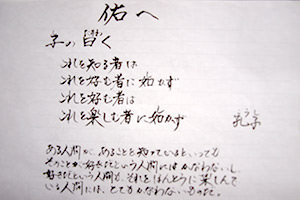 佑へ
子の曰く
これを知る者は
これを好む者に如かず
これを好む者は
これを楽しむ者に如かず
孔子
ある人間が、あることを知っているといっても
そのことが好きだという人間にはかなわないし、
好きだという人間も、それをほんとうに楽しんで
いる人間には、とてもかなわないものだ。